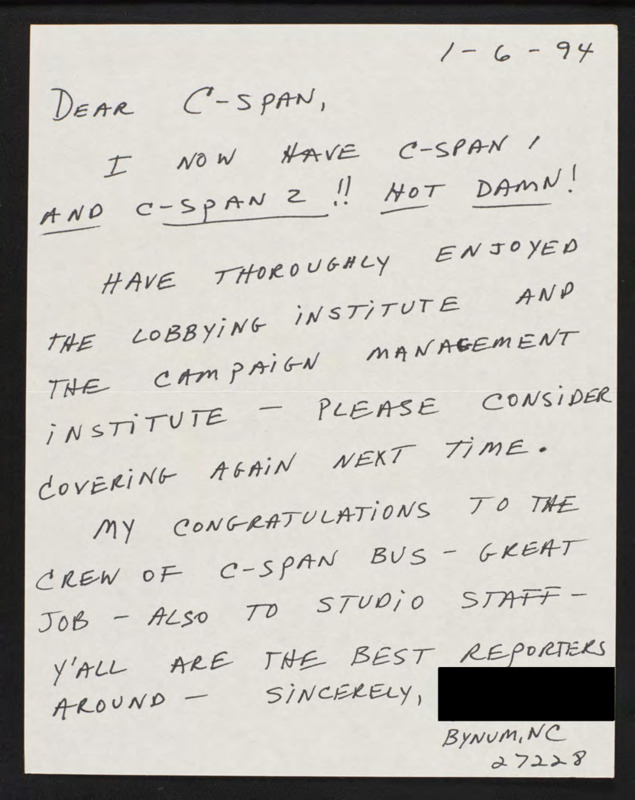 1-6-94
DEAR C-SPAN,
I NOW HAVE C-SPAN 1
AND C-SPAN 2!! HOT DAMN!
HAVE THOROUGHLY ENJOYED
THE LOBBYING INSTITUTE AND
THE CAMPAIGN MANAGEMENT
INSTITUTE - PLEASE CONSIDER
COVERING AGAIN NEXT TIME.
MY CONGRATULATIONS TO THE
CREW OF C-SPAN BUS - GREAT
JOB - ALSO TO STUDIO STAFF -
Y'ALL ARE THE BEST REPORTERS
AROUND - SINCERELY,
BYNUM, NC
27228